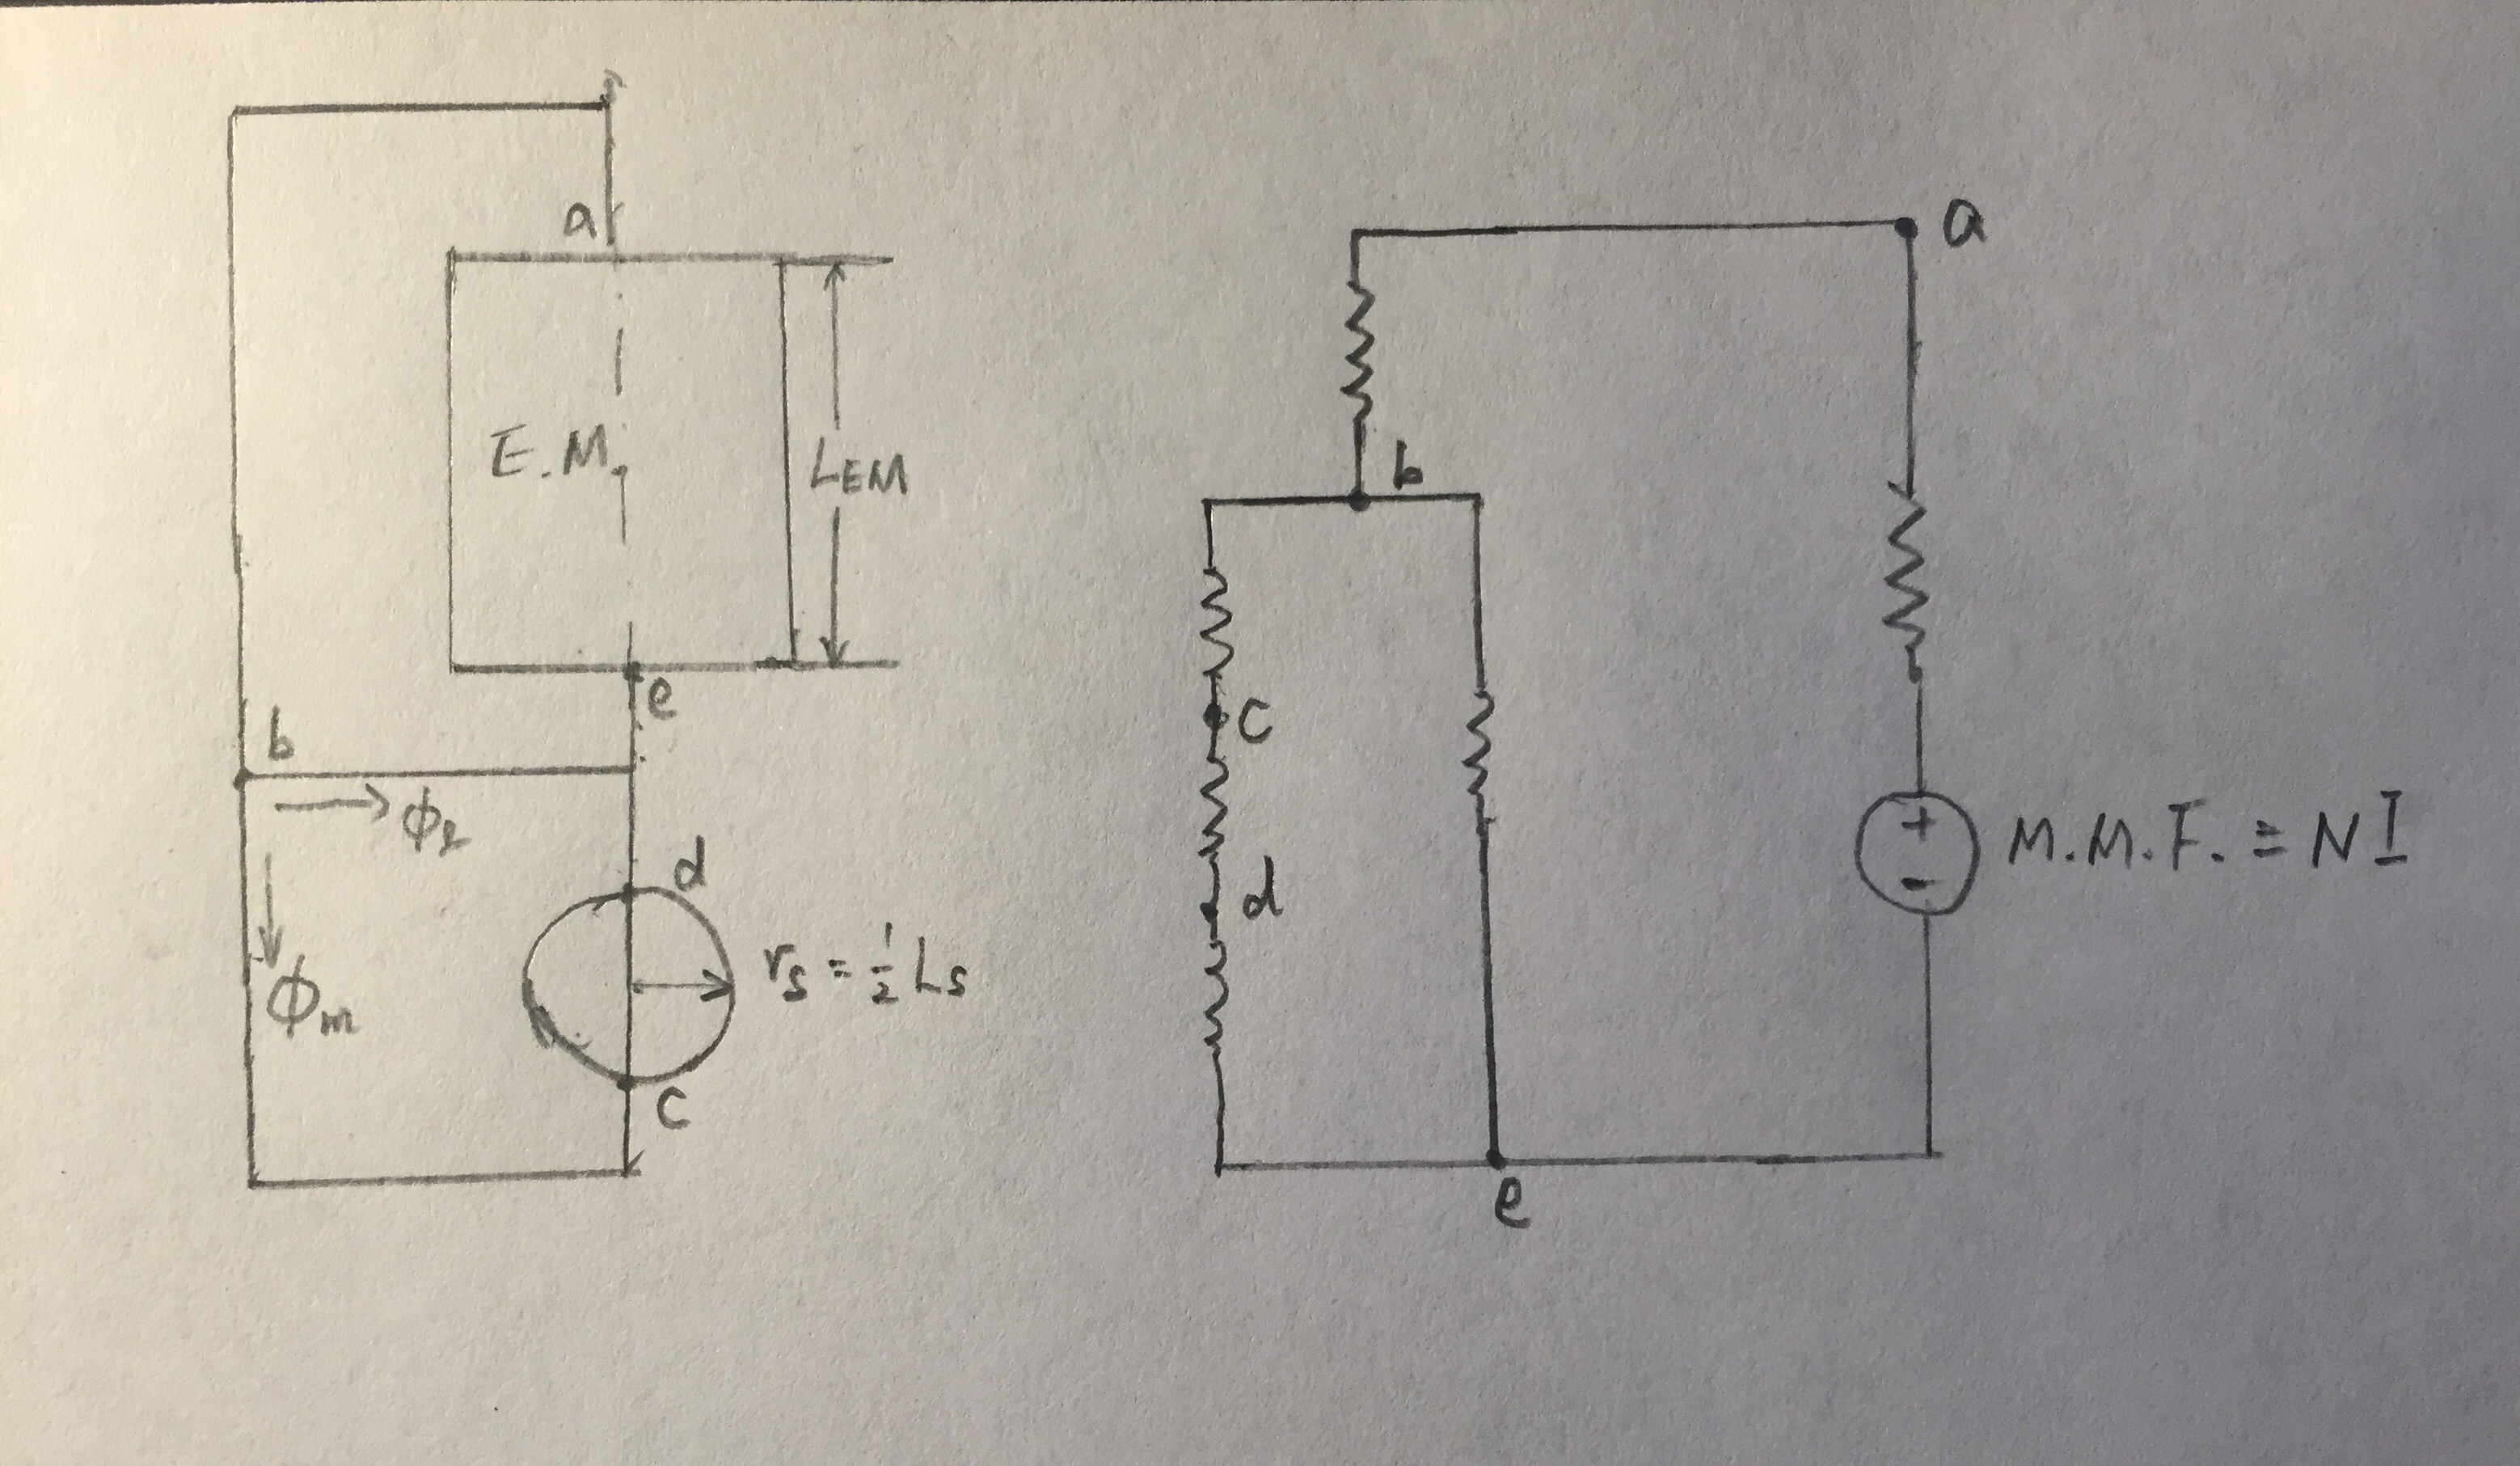 a
E.M.
LEM
e
b
ϕℓ
d
ϕm
rs = ½ Ls
c
a
b
c
d
+
-
M.M.F. = NI
e